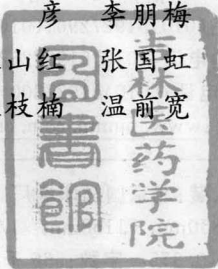 彦 李朋梅
山红 张国虹
枝楠 温前宽
吉林医药学院
圖書館